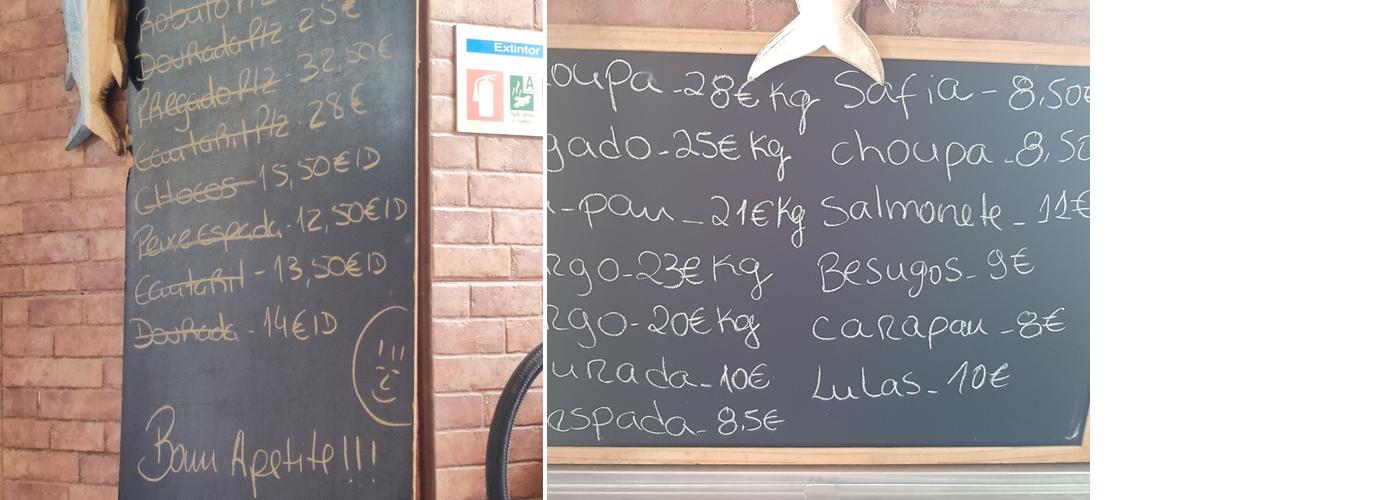 Robalo Plz 25€
Dourada Plz - 25€
Pregado Plz - 32,50€
Cantaril Plz - 28€
Chocos - 15,50€ ID
Peixe Espada - 12,50€ ID
Cantaril - 13,50€ ID
Dourada - 14€ ID
Bom Apetite!!!
Extintor
A
oupa - 28€ Kg
gado - 25€ Kg
-pau - 21€ Kg
rgo - 23€ Kg
rgo - 20€ Kg
urada - 10€
espada - 8.5€
Safia - 8,50€
choupa - 8,50
Salmonete - 11€
Besugos - 9€
carapau - 8€
Lulas - 10€